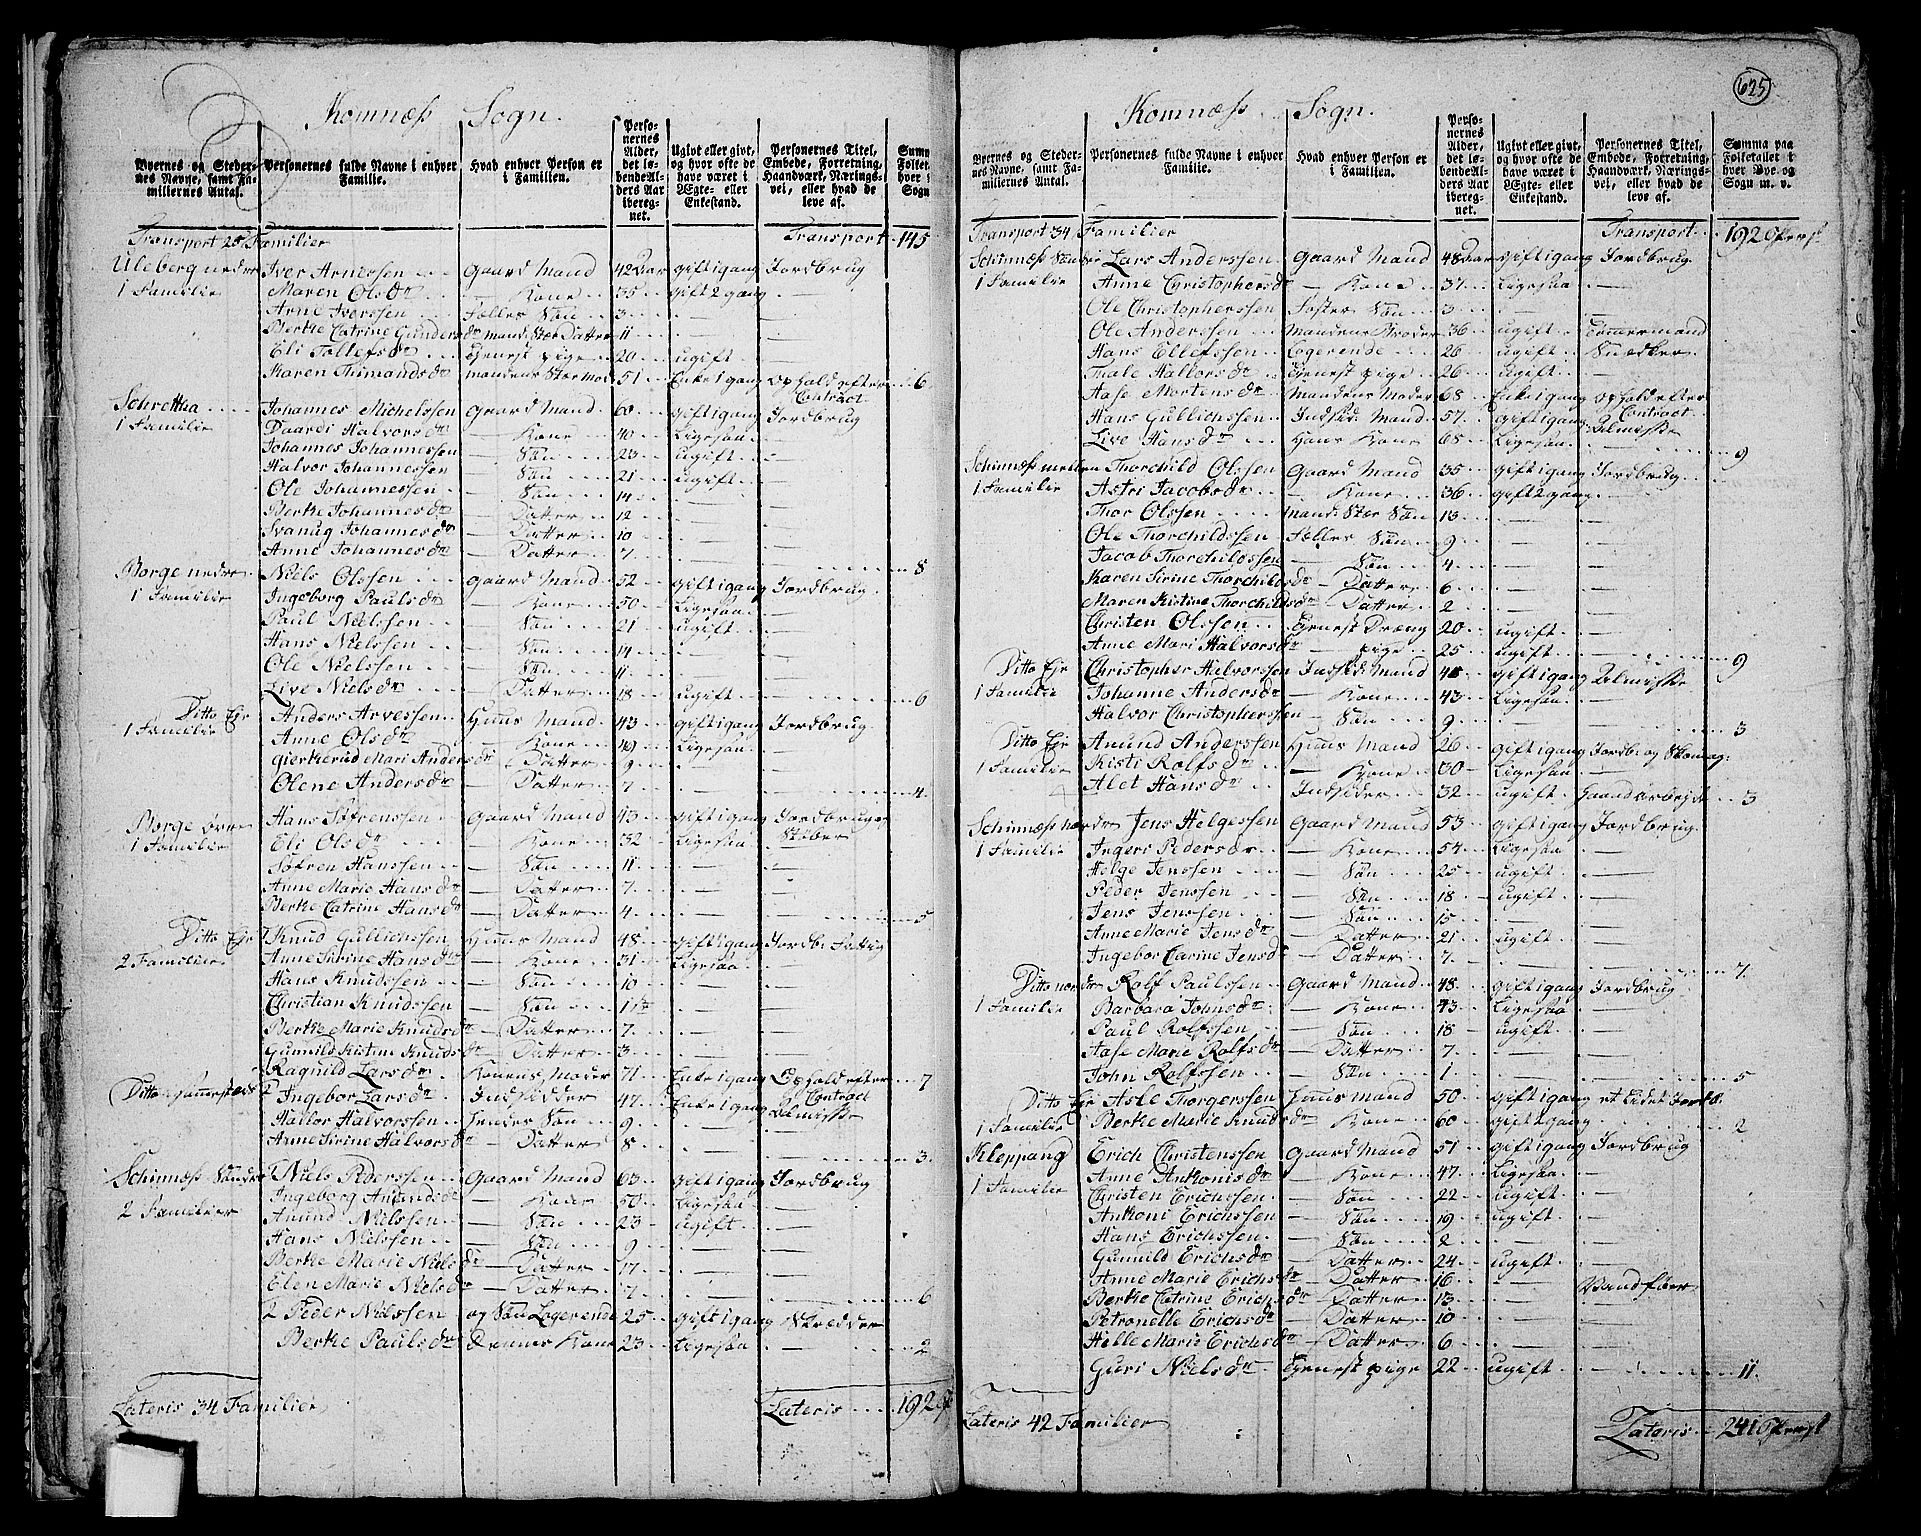 Komnæs Sogn.
Byernes og Stedernes Navne, samt Familliernes Antal.
Personernes fulde Navne i enhver Familie.
Hvad enhver Person er i Familien.
Personernes Alder, det løbendeAlders Aar iberegnet.
Ugivt eller givt, og hvor ofte de have været i Ægte- eller Enkestand.
Personernes Titel, Embede, Forretning, Haandværk, Næringsvei, eller hvad de leve af.
Transport 25 Familier Transport 145
Uleberg nedre Iver Arnessen Gaard Mand 42 Aar gift 1 gang Jordbrug
1 Familie Maren Olsdr — Kone 35 gift 2 gang —
Arne Iverssen Fælles Søn 3 — —
Berthe Catrine Gundersdr mand: Stee Datter 11 — —
Eli Tollefsdr tjenest pige 20 ugift —
Karen Thimandsdr mandens Steemod 51 Enke 1 gang ophold efter Contract 6
Schrettha Johannes Michelssen Gaard Mand 60 gift 1 gang Jordbrug
1 Familie Daardi Halvorsdr — Kone 40 Ligesaa —
Johannes Johannessen — Søn 23 ugift —
Halvor Johannessen — Søn 21 ugift —
Ole Johannessen — Søn 14 — —
Berthe Johannesdr — Datter 12 — —
Svanug Johannesdr — Datter 10 — —
Anne Johannesdr — Datter 7 — — 8
Borge nedre Niels Olssen Gaard Mand 52 gift 1 gang Jordbrug
1 Familie Ingeborg Paulsdr — Kone 50 Ligesaa —
Paul Nielssen — Søn 21 ugift —
Hans Nielssen — Søn 14 — —
Ole Nielssen — Søn 11 — —
Live Nielsdr — Datter 18 ugift — 6
Ditto Eje Anders Arvessen Huus Mand 43 gift 1 gang Jordbrug
1 Familie Anne Olsdr — Kone 49 Ligesaa —
Gierthrud Mari Andersdr — Datter 9 — —
Olene Andersdr — Datter 7 — — 4
Borge øvre Hans Søfrenssen Gaard Mand 43 gift 1 gang Jordbruger
1 Familie Eli Olsdr — Kone 32 Ligesaa Støber
Søfren Hanssen — Søn 11 — —
Anne Marie Hansdr — Datter 7 — —
Berthe Catrine Hansdr — Datter 4 — — 5
Ditto Eje 1 Knud Gullichssen Huus Mand 48 gift 1 gang Jordb: Fattig
2 Familier Anne Sirine Hansdr — Kone 31 Ligesaa —
Hans Knudssen — Søn 10 — —
Christian Knudssen — Søn — —
Berthe Marie Knudsdr — Datter 7 — —
Gunnild Kistine Knudsdr — Datter 3 — —
Ragnild Larsdr Konens Moder 71 Enke 1 gang Ophold efter Contract 7
Ditto 2 Ingebor Larsdr Indsidder 47 Enke 1 gang Almisse
Hallor Halvorssen Hendes Søn 9 — —
Anne Sirine Halvorsdr — Datter 8 — — 3
Schinnæss Søndre 1 Niels Pederssen Gaard Mand 63 gift 1 gang Jordbrug
2 Familier Ingeborg Anundsdr — Kone 50 Ligesaa —
Anund Nielssen — Søn 23 ugift —
Hans Nielssen — Søn 9 — —
Berthe Marie Nielsdr — Datter 17 — —
Elen Marie Nielsdr — Datter 7 — — 6
2 Peder Nielssen og Søn Logerende 25 gift 1 gang Skrædder
Berthe Paulsdr Dennes Kone 23 Ligesaa 2
Lateris 34 Familier Lateris 192
625
Komnæs Sogn.
Byernes og Stedernes Navne, samt Familiernes Antal.
Personernes fulde Navne i enhver Familie.
Hvad enhver Person er i Familien.
Personernes Alder, det løbendeAlders Aar iberegnet.
Ugivt eller givt, og hvor ofte de have været i Ægte- eller Enkestand.
Personernes Titel, Embede, Forretning, Haandværk, Næringsvei, eller hvad de leve af.
Summa paa Folketallet i hver Bye og Sogn m. v.
Transport 34 Familier Transport 192 Perss
Schinnæss Søndre Lars Anderssen Gaard Mand 48 Aar gift 1 gang Jordbrug
1 Familie Anne Christophersdr — Kone 37 Ligesaa —
Ole Christopherssen Foster Søn 3 — —
Ole Anderssen Mandens Broder 36 ugift Tømmermand
Hans Ellefssen Logerende 26 ugift Snedker
Thale Hallorsdr tjenest pige 26 ugift —
Aase Mortensdr Mandens Moder 68 Enke 1 gang ophold efter Contract
Hans Gullichssen Indsid: Mand 57 gift 1 gang Almisse
Live Hansdr Hans Kone 65 Ligesaa 9
Schinnæss mellem Thorchild Olssen Gaard Mand 35 gift 1 gang Jordbrug
1 Familie Astri Jacobsdr — Kone 36 gift 2 gang —
Thor Olssen mand: Stee Søn 13 — —
Ole Thorchildssen Fælles Søn 9 — —
Jacob Thorchildssen — Søn 4 — —
Karen Sirine Thorchildsdr — Datter 6 — —
Maren Kistine Thorchildsdr — Datter 2 — —
Christen Olssen tjenest Dræng 20 ugift —
Anne Mari Halvorsdr — pige 25 ugift — 9
Ditto Eje Christopher Halvorssen Indsid: Mand gift 1 gang Almisse
1 Familie Johanne Andersdr — Kone 43 Ligesaa —
Halvor Christopherssen — Søn 9 — 3
Ditto Eje Anund Anderssen Huus Mand 26 gift 1 gang Jordb: og Skomag:
1 Familie Kisti Rolfsdr — Kone 30 Ligesaa —
Alet Hansdr Indsider 32 ugift Haandarbejde 3
Schinnæss nordre Jens Helgessen Gaard Mand 53 gift 1 gang Jordbrug
1 Familie Ingers Pedersdr — Kone 54 Ligesaa —
Helge Jenssen — Søn 25 ugift —
Peder Jenssen — Søn 18 ugift —
Jens Jenssen — Søn 15 — —
Anne Marie Jensdr — Datter 21 ugift —
Ingebor Carine Jensdr — Datter 7 — — 7
Ditto nordre Rolf Paulssen Gaard Mand 48 gift 1 gang Jordbrug
1 Familie Barbara Johnsdr — Kone 43 Ligesaa —
Paul Rolfssen — Søn 18 ugift —
Aase Marie Rolfsdr — Datter 7 — —
John Rolfssen — Søn 1 — — 5
Ditto Eje Asle Thorgerssen Huusmand 50 gift 1 gang et Lidet Jordb.
1 Familie Berthe Marie Knudsdr — Kone 60 gift 1 gang 2
Kleppang Erich Christenssen Gaard Mand 51 gift 1 gang Jordbrug
1 Familie Anne Anthonisdr — Kone 47 Ligesaa —
Christen Erichssen — Søn 22 ugift —
Anthoni Erichssen — Søn 19 ugift —
Hans Erichssen — Søn 2 — —
Gunnild Erichsdr — Datter 24 ugift —
Anne Marie Erichsdr — Datter 16 —
Berthe Catrine Erichsdr — Datter 13 —
Petronelle Erichsdr — Datter 10 — —
Helle Marie Erichsdr — Datter 6 — —
Guri Nielsdr tjenest pige 22 ugift — 11
Lateris 42 Familier Lateris 241 Perss